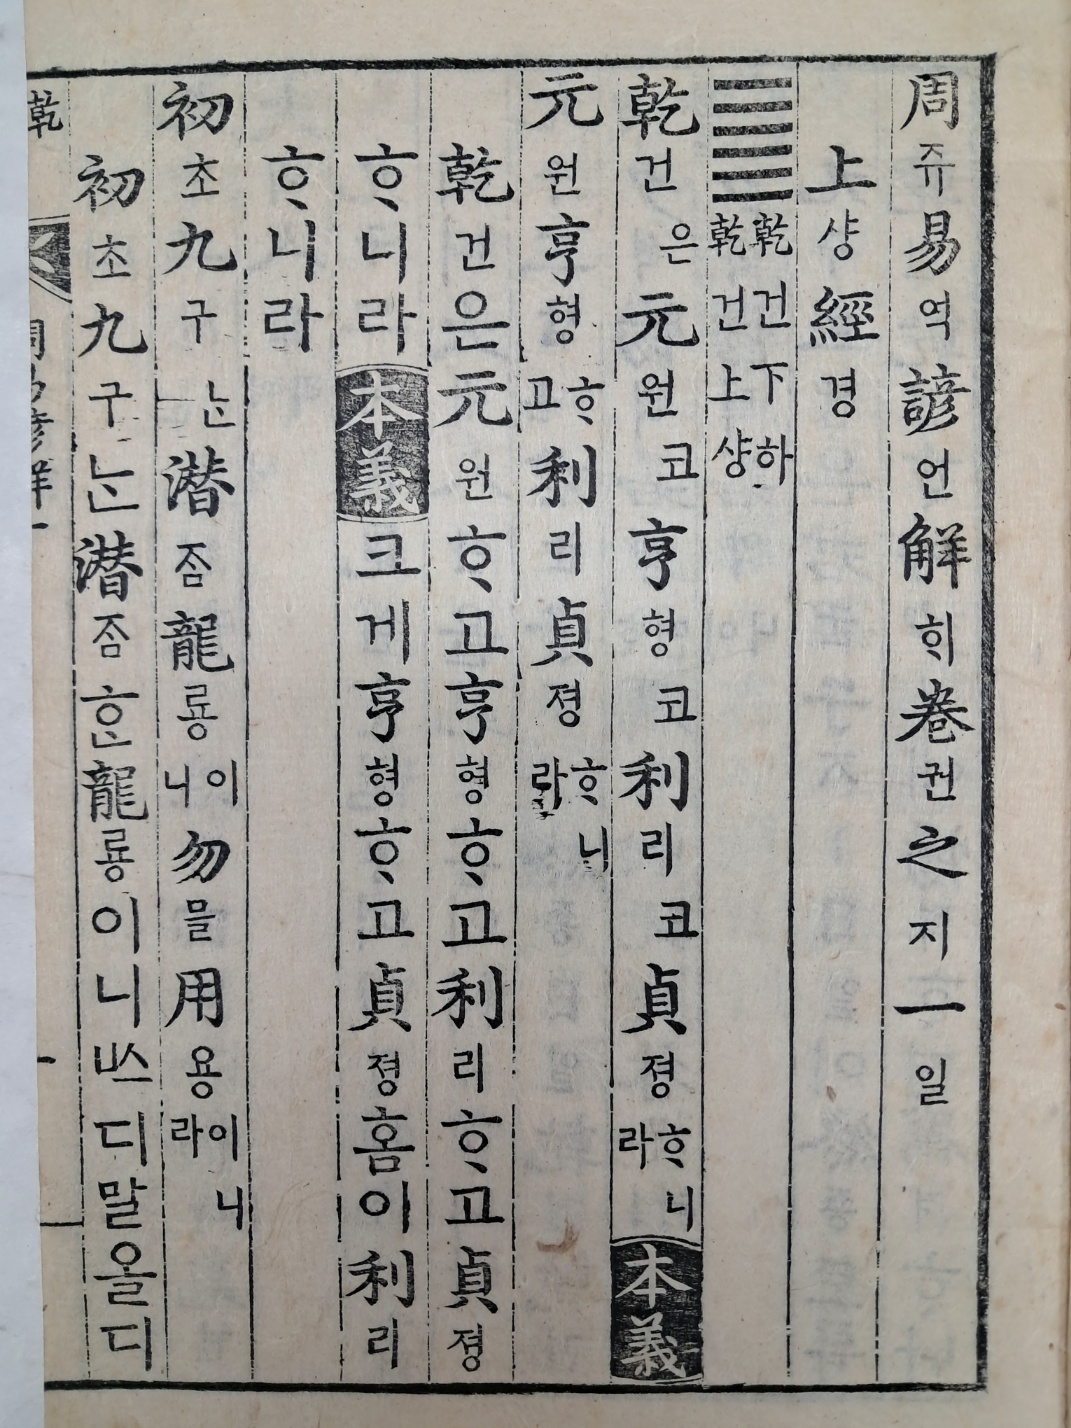 周쥬易역諺언解ᄒᆡ卷권之지一일
上샹經경
䷀乾건下하乾건上샹
乾건은元원코亨형코利리코貞졍ᄒᆞ니라本義
元원亨형ᄒᆞ고利리貞졍ᄒᆞ니라
乾건은元원ᄒᆞ고亨형ᄒᆞ고利리ᄒᆞ고貞졍
ᄒᆞ니라本義크게亨형ᄒᆞ고貞졍홈이利리
ᄒᆞ니라
初초九구ᄂᆞᆫ潛ᄌᆞᆷ龍룡이니勿믈用용이니라
初초九구ᄂᆞᆫ潛ᄌᆞᆷᄒᆞᆫ龍룡이니ᄡᅳ디말올디
乾 周易諺解一 一